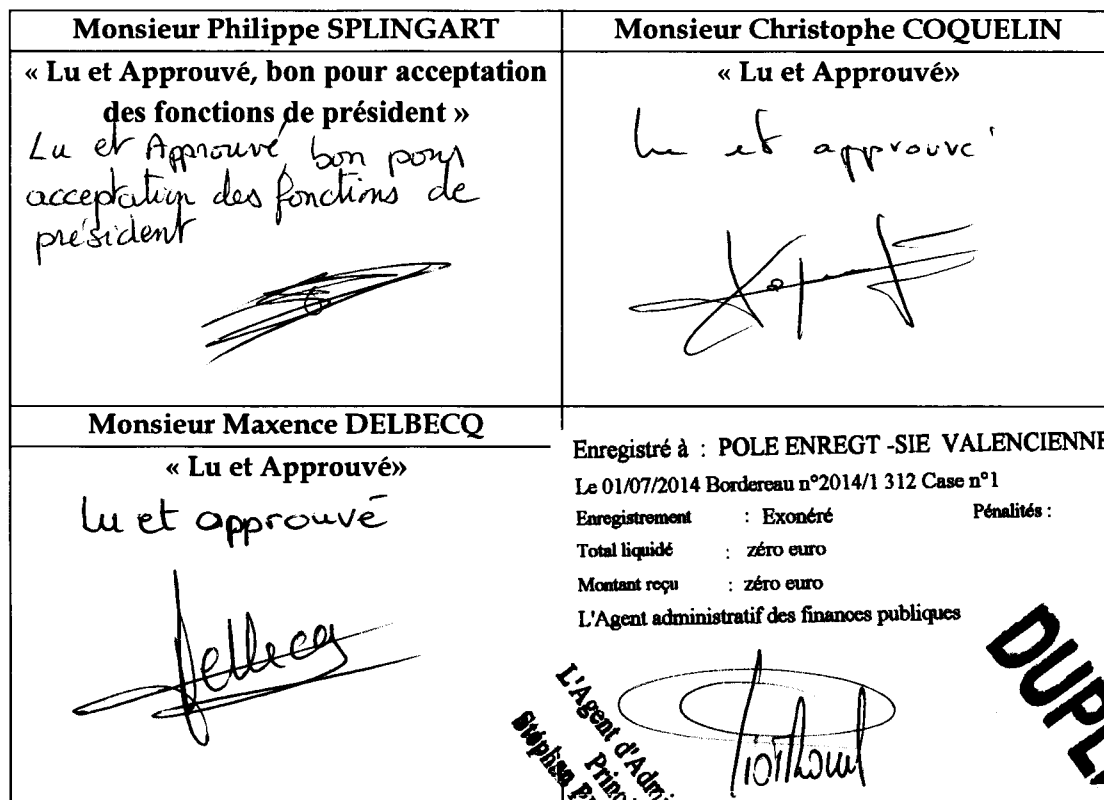 Monsieur Philippe SPLINGART
« Lu et Approuvé, bon pour acceptation
des fonctions de président »
Lu et Approuvé, bon pour
acceptation des fonctions de
président
Monsieur Christophe COQUELIN
« Lu et Approuvé»
Lu et approuvé
Monsieur Maxence DELBECQ
« Lu et Approuvé»
Lu et approuvé
Delbecq
Enregistré à : POLE ENREGT -SIE VALENCIENNE
Le 01/07/2014 Bordereau n°2014/1 312 Case n°1
Enregistrement : Exonéré Pénalités :
Total liquidé : zéro euro
Montant reçu : zéro euro
L'Agent administratif des finances publiques
L'Agent d'Admi
Princ
DUPL